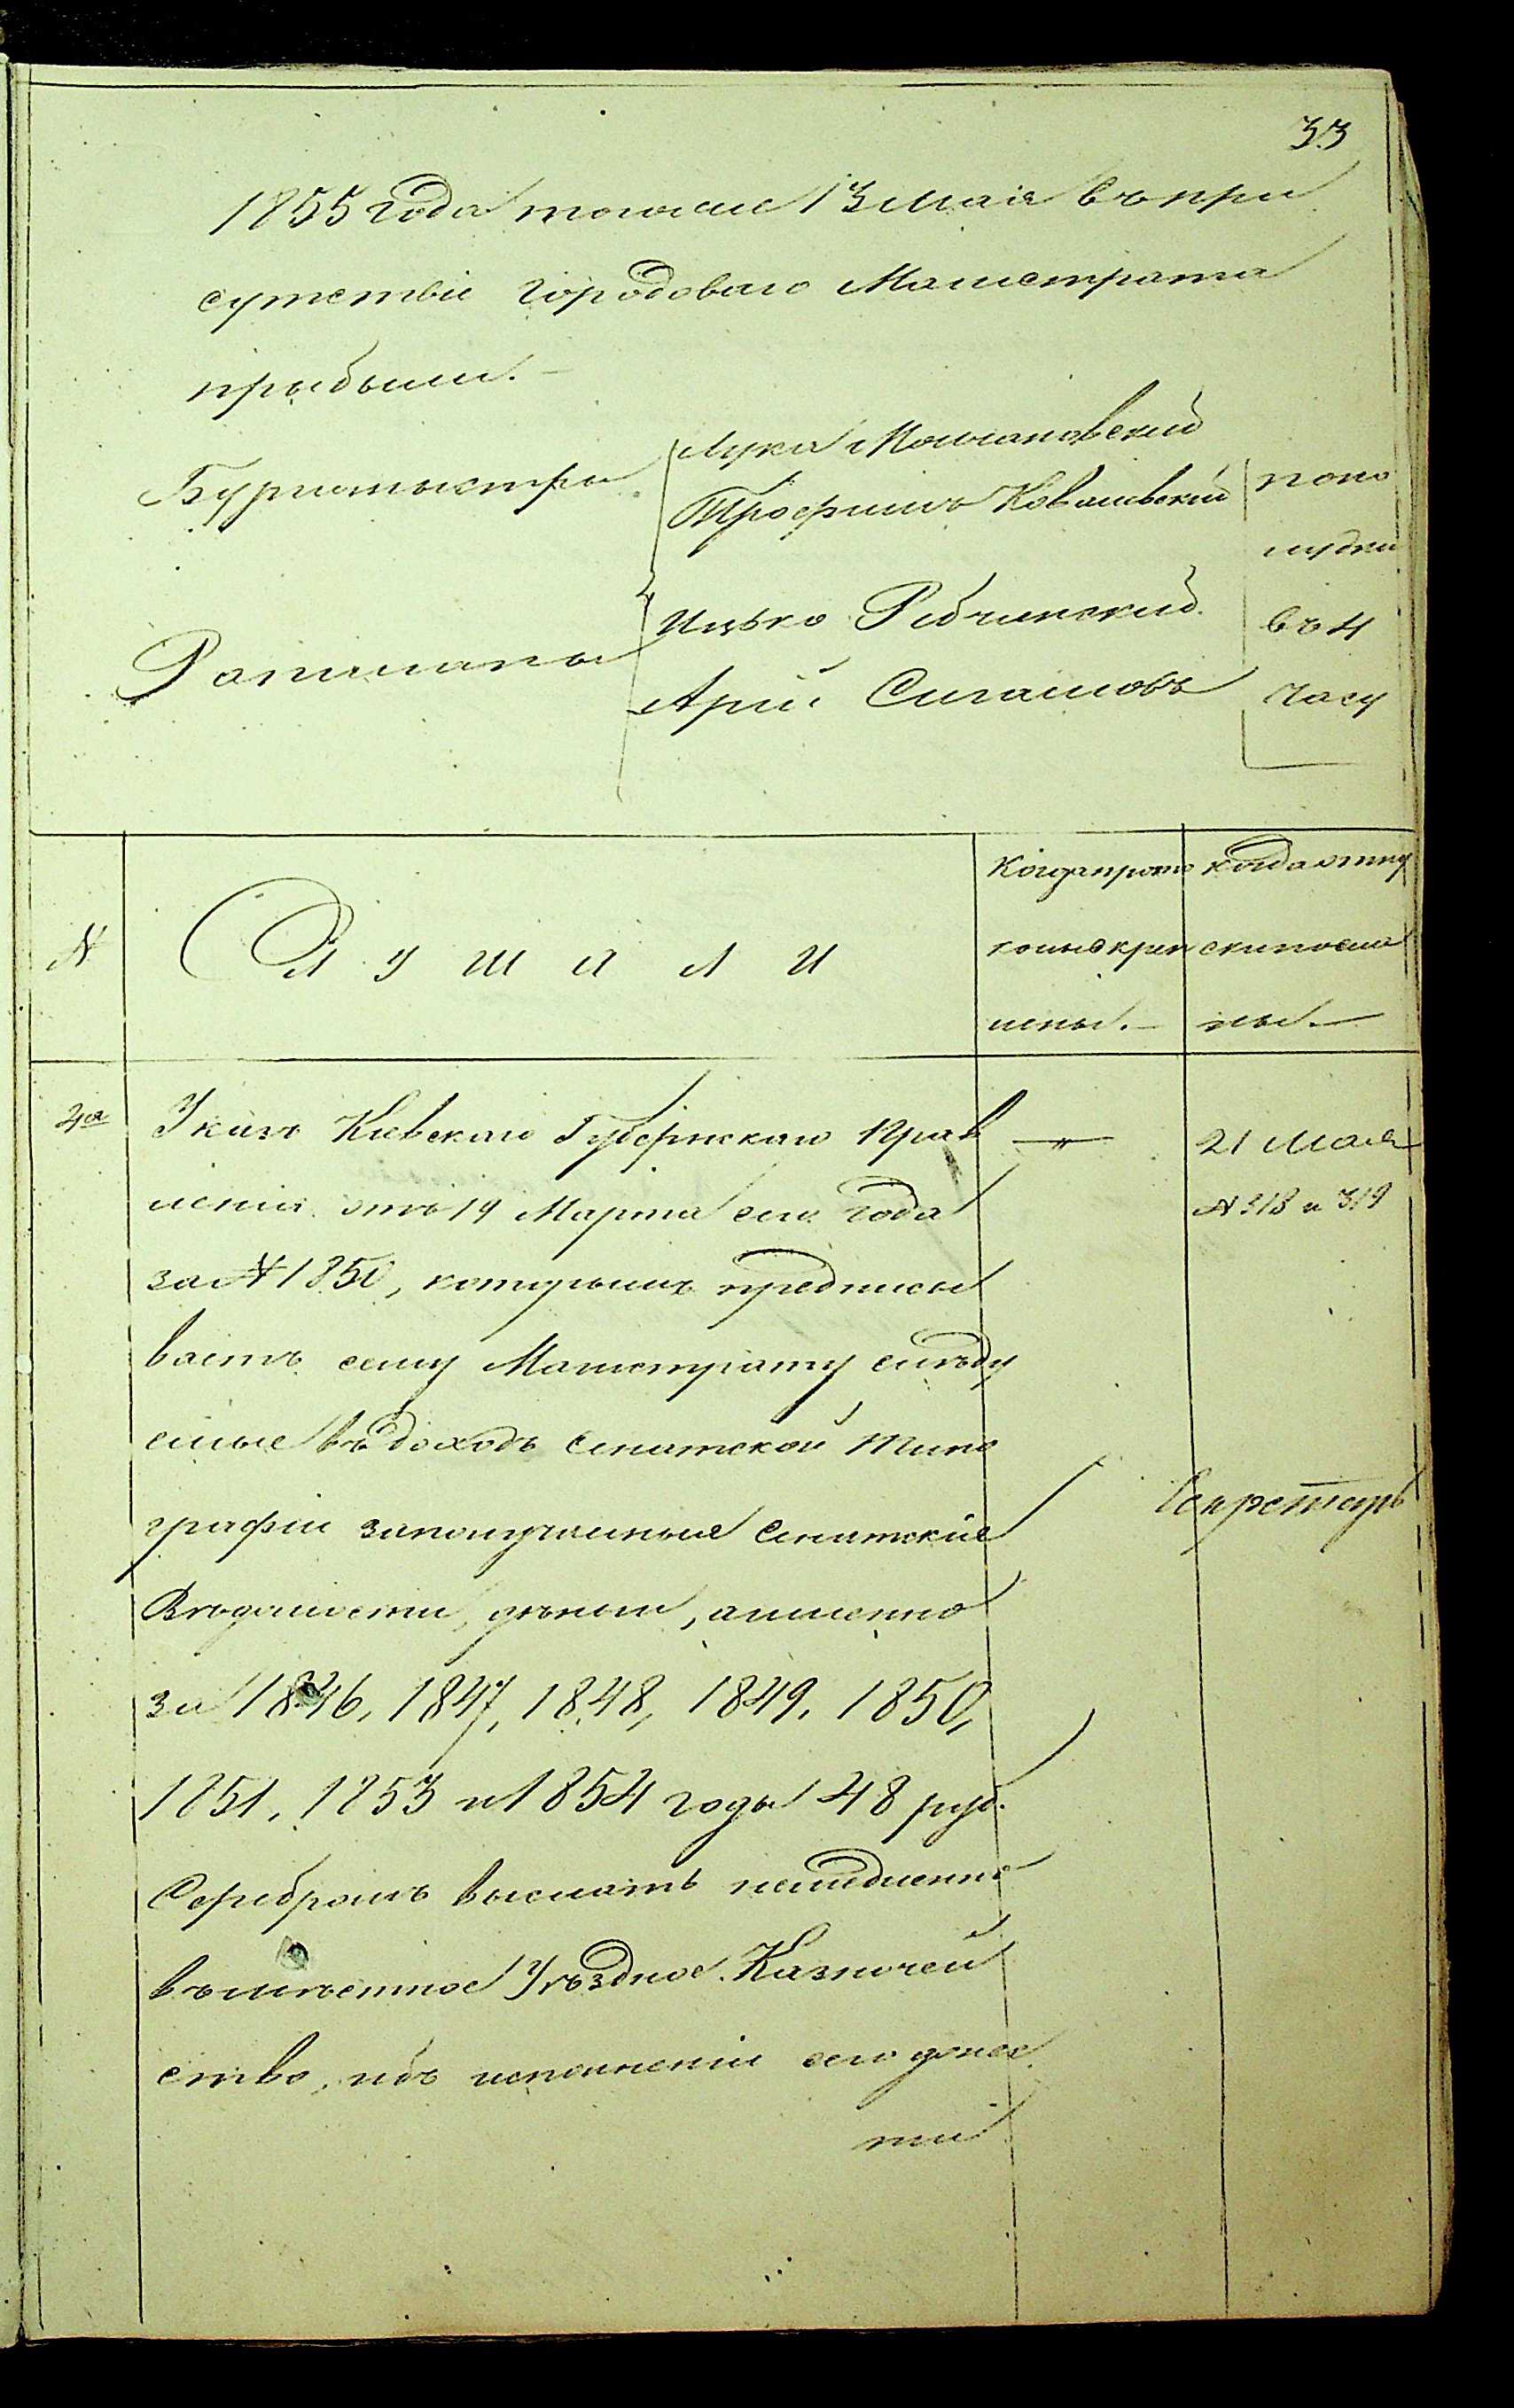 33
1855 года того же 13 мая въ при
сутствіе Городоваго Магистрата
прибыли.
Бургомыстры
Лука Молчановскій
Трофимъ Ковалевскій
Ратманы
Ицько Рабчинскій
Арій Сигаловъ
попо
лудни
въ 4
часу
№
Слушали
Когда прото
колы скреп
лены.
когда отпу
ски посла
ны.
4я
Указъ Кіевскаго Губернскаго Прав
ленія отъ 19 Марта сего года
за № 1850, которымъ предписы
ваетъ сему Магистрату слѣду
емые въ доходъ Сенатской Типо
графіи за получаемыя Сенатскіе
Вѣдомости, деньги, а именно
за 1846, 1847, 1848, 1849, 1850,
1851, 1853 и 1854 годы 48 руб.
Серебромъ выслать немедленно
въ мѣстное Уѣздное Казначей
ство, объ исполненіи сего донес
ти
21 Мая
№ 318 и 319
Секретарь